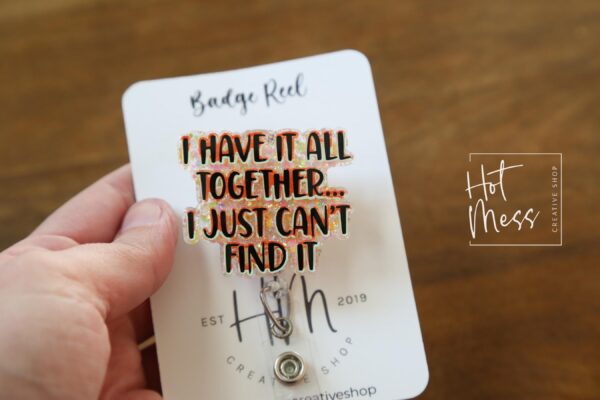 Badge Reel
I HAVE IT ALL
TOGETHER...
I JUST CAN'T
FIND IT
EST
2019
CREATIVE SHOP
creativeshop
Hot
Mess
CREATIVE SHOP